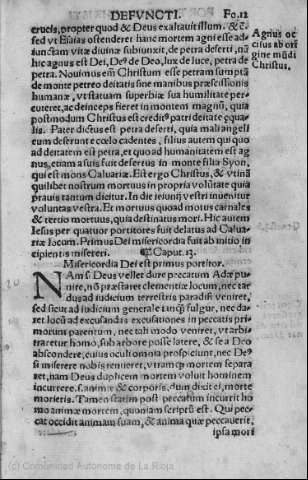 DEFVNCTI. Fo.12
crucis, propter quod & Deus exaltauit illum. &c̃.
sed vt Esaias ostenderet hanc mortem agni esse ad-
iunctam vitæ diuinæ subiunxit, de petra deserti, nã
hic agnus est Dei, De⁹ de Deo, lux de luce, petra de
petra. Nouimus em̃ Christum esse petram sumptã
de monte petreo deitatis sine manibus præscissionis
humanæ, vt statuam superbiæ sua humilitate per-
cuteret, ac deinceps fieret in montem magnũ, quia
postmodum Christus est creditᵘˢ patri deitate equa-
lis. Pater dictus est petra deserti, quia mali angeli
eum deserunt e cœlo cadentes, filius autem qui quo
ad deitatem est petra, et quod ad humanitatem est ag
nus, etiam a suis fuit desertus in monte filiæ Syon,
qui est mons Caluariæ. Est ergo Christus, & vtinã
quilibet nostrum mortuus in propria volũtate quia
prauis tantum dicitur. In die ieiunij vestri inuenitur
voluntas vestra. Et mortuus quoad motus carnales
& tertio mortuus, quia destinatus mori. Hic autem
Iesus per quatuor portitores fuit delatus ad Calua-
riæ locum. Primus Dei misericordia fuit ab initio in
cipientis misereri. ¶Caput. 13.
Misericordia Dei est primus portitor.
NAm si Deus vellet dure peccatum Adæ pu-
nire, nõ præstaret clementiæ locum, nec tar
dus ad iudicium terrestris paradisi veniret,
sed sicut ad iudicium generale tunq̃ fulgur, nec da-
ret locũ ad excusandas excusationes in peccatis pri-
morum parentum, nec tali modo veniret, vt arbi-
traretur homo, sub arbore posse latere, & se a Deo
abscondere, cuius oculi omnia prospiciunt, nec De⁹
si miserere nobis renueret, vtramq̃ mortem separa
ret, nam Deus duplicem mortem voluit hominem
incurrere, s. animæ & corporis, dum dixit ei, morte
morietis. Tamen statim post peccatum incurrit ho
mo animæ mortem, quoniam scriptũ est. Qui pec-
cat occidit animam suam, & anima quæ peccauerit,
ipsa mori
Agnus oc
cisus ab ori
gine mũdi
Christus.
(c) Comunidad Autonoma de La Rioja